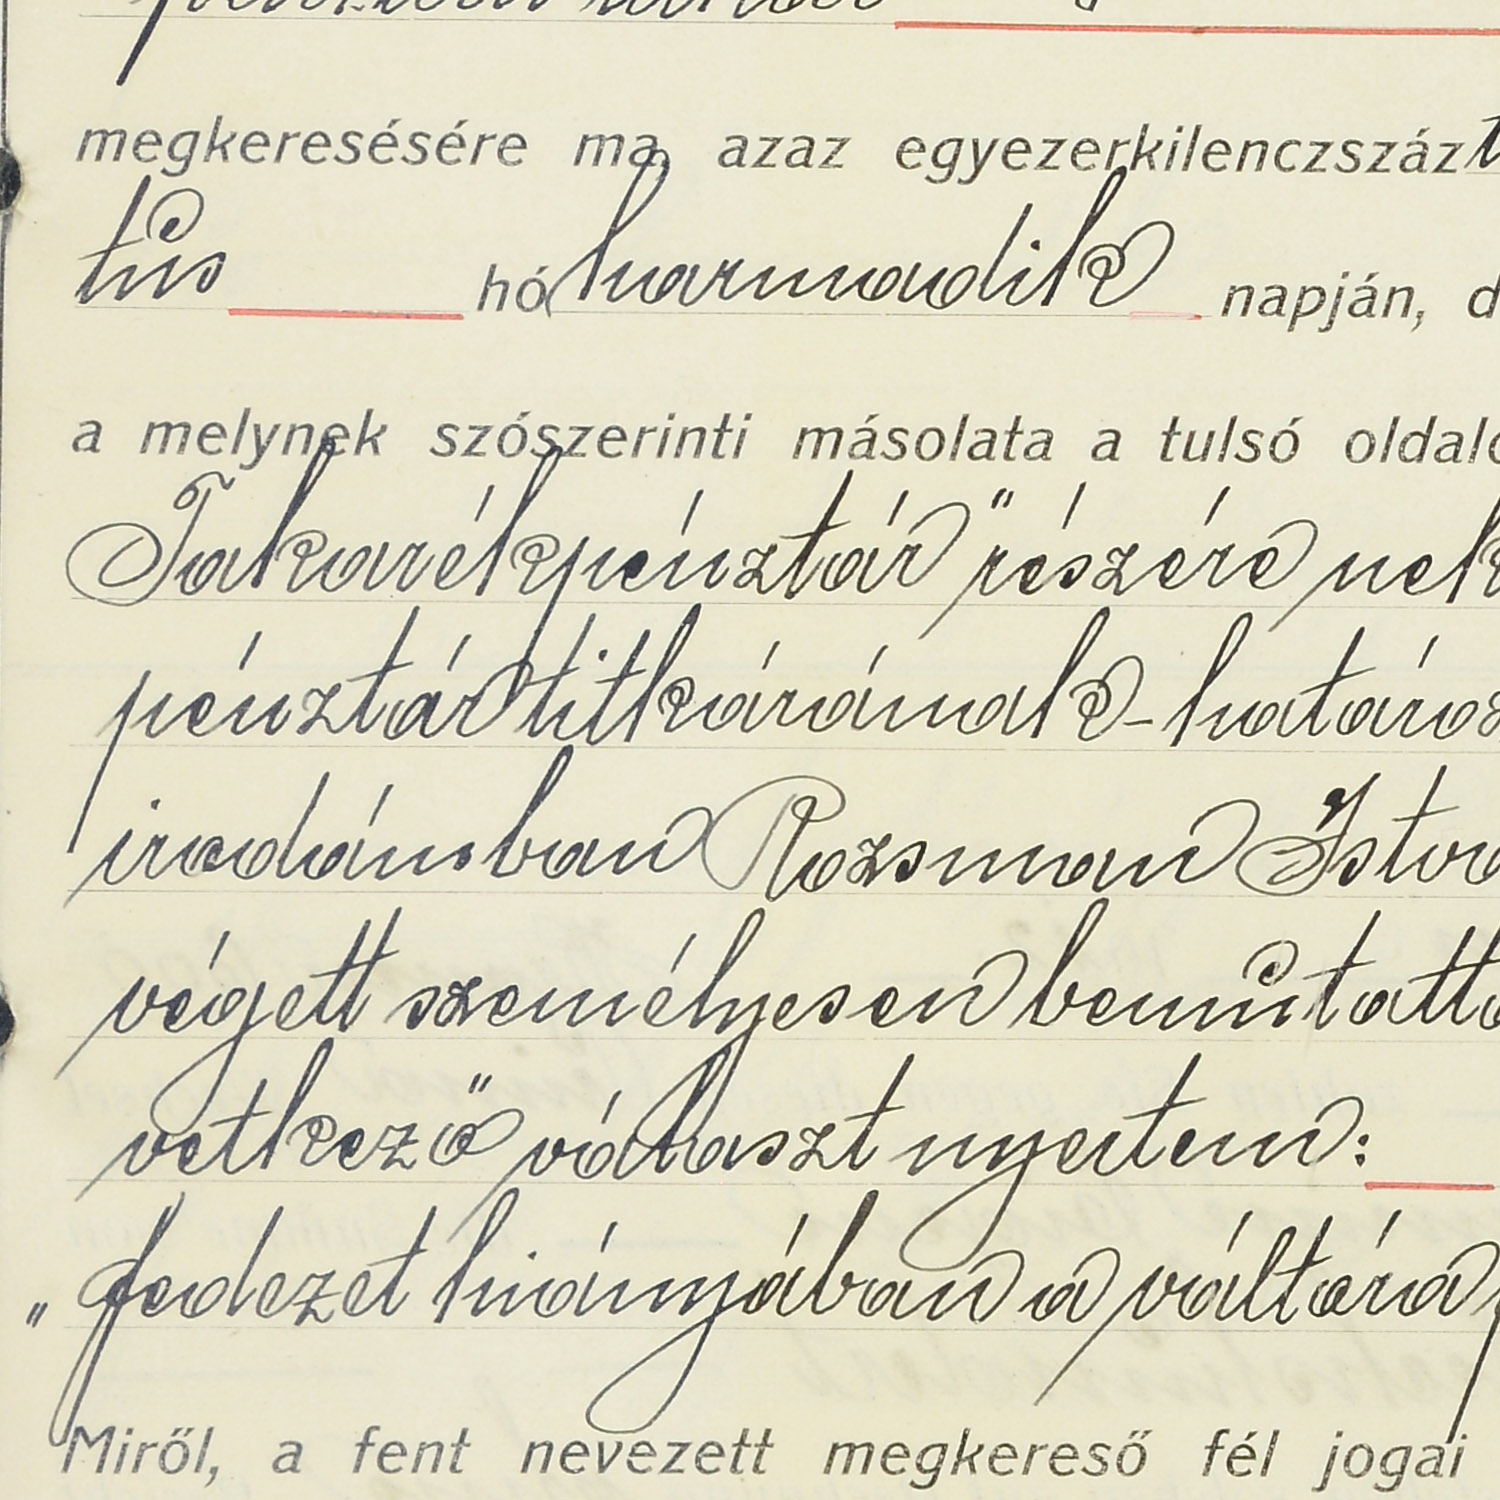 megkeresésére ma, azaz egyezerkilenczszáz
tus hó harmadik napján, d
a melynek szószerinti másolata a tulsó oldalo
Takarékpénztár" részére nek
pénztár titkárának - határoz
irodámban Rozsman Istvá
végett személyesen bemutatta
vetkező választ nyertem:
"fedezet hiányában a váltóra
Miről, a fent nevezett megkereső fél jogai